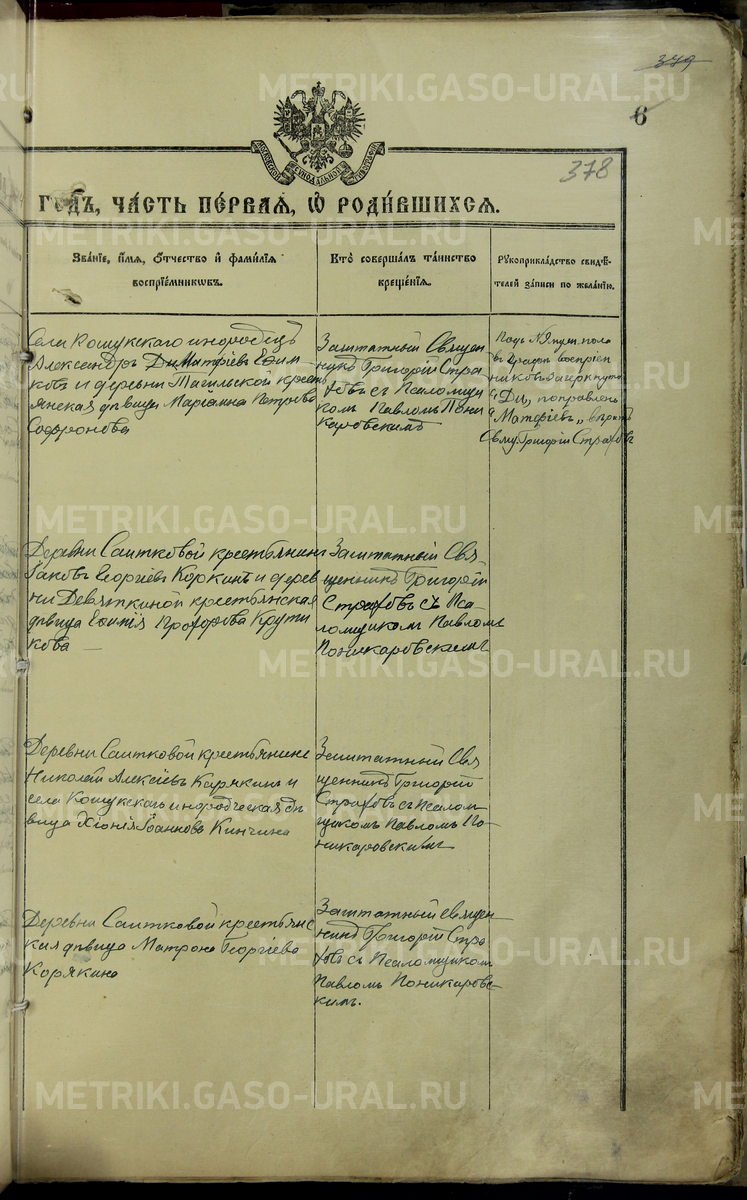 379
6
378
МОСКОВСКОЙ СѴНОДАЛЬНОЙ ТИПОГРАФІИ
ГОДЪ, ЧА́СТЬ ПЕ́РВАЯ, Ѡ҆ РОДИ́ВШИХСЯ.
Зва́ніе, и҆́мя, ѻ҆́тчество и҆ фами́лія
воспріе́мникѡвъ.
Кто̀ соверша́лъ та́инство
креще́нія.
Рꙋкоприкла́дство свидѣ́-
телей за́писи по жела́нію.
Села Кошукскаго инородецъ
Александръ ДиМатфіевъ Ефим-
ковъ и деревни Тагильской крест
янская дѣвица Марианна Петрова
Софронова
Заштатный Священ
никъ Григорій Стра
ховъ съ Псаломщи
комъ Павломъ Пони
каровскимъ
Подъ № 9 муж. пола
въ графѣ воспріем
никовъ зачеркнуто
„Ди„ поправлено
„Матфіевъ„ вѣрно
Свящ. Григорій Страховъ
Деревни Саитковой крестьянинъ
Іаковъ Георгіевъ Коркинъ и дерев
ни Девяткиной крестьянская
дѣвица Евѳимія Прохорова Крути
кова
Заштатный Свя
щенникъ Григорій
Страховъ съ Пса-
ломщикомъ Павломъ
Поникаровскимъ
Деревни Саитковой крестьянинъ
Николай Алексіевъ Карякинъ и
села Кошукскаго инородческая дѣ
вица Хіонія Іоаннова Кинчина
Заштатный Свя
щенникъ Григорій
Страховъ съ Псалом-
щикомъ Павломъ По-
никаровскимъ
Деревни Саитковой крестьянс
кая дѣвица Матрона Георгіева
Корякина
Заштатный Священ
никъ Григорій Стра
ховъ съ Псаломщикомъ
Павломъ Поникаровс-
кимъ.
METRIKI.GASO-URAL.RU